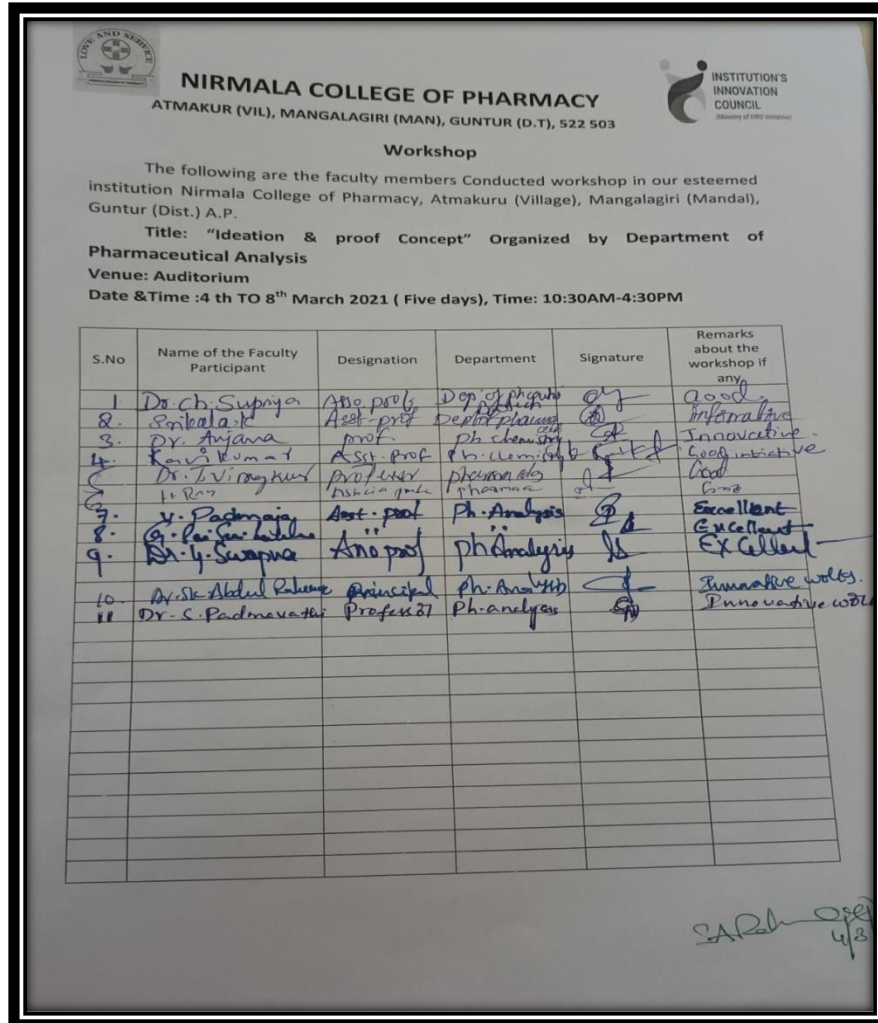 LOVE AND SERVICE
NIRMALA COLLEGE OF PHARMACY
ATMAKUR (VIL), MANGALAGIRI (MAN), GUNTUR (D.T), 522 503
INSTITUTION'S
INNOVATION
COUNCIL
(Ministry of HRD Initiative)
Workshop
The following are the faculty members Conducted workshop in our esteemed
institution Nirmala College of Pharmacy, Atmakuru (Village), Mangalagiri (Mandal),
Guntur (Dist.) A.P.
Title: "Ideation & proof Concept" Organized by Department of
Pharmaceutical Analysis
Venue: Auditorium
Date &Time :4 th TO 8th March 2021 ( Five days), Time: 10:30AM-4:30PM
S.No Name of the Faculty Participant Designation Department Signature Remarks about the workshop if any
1 Dr. Ch. Supriya Asso. prof Good.
2. Srikala.k Asst-prof
3. Dr. Anjana prof ph chemistry Innovative.
4. Ravi Kumar Asst. Prof Ph. Good
Dr. T. professor Good
7. V. Padmaja Asst. prof Ph. Analysis Excellent
8. G. " " Excellent
9. Dr. G. Swapna ph Analysis Excellent
10. Dr. Sk. Abdul principal Ph. Analysis
11 Dr. S. Padmavathi Professor Ph. analysis Innovative
4/3